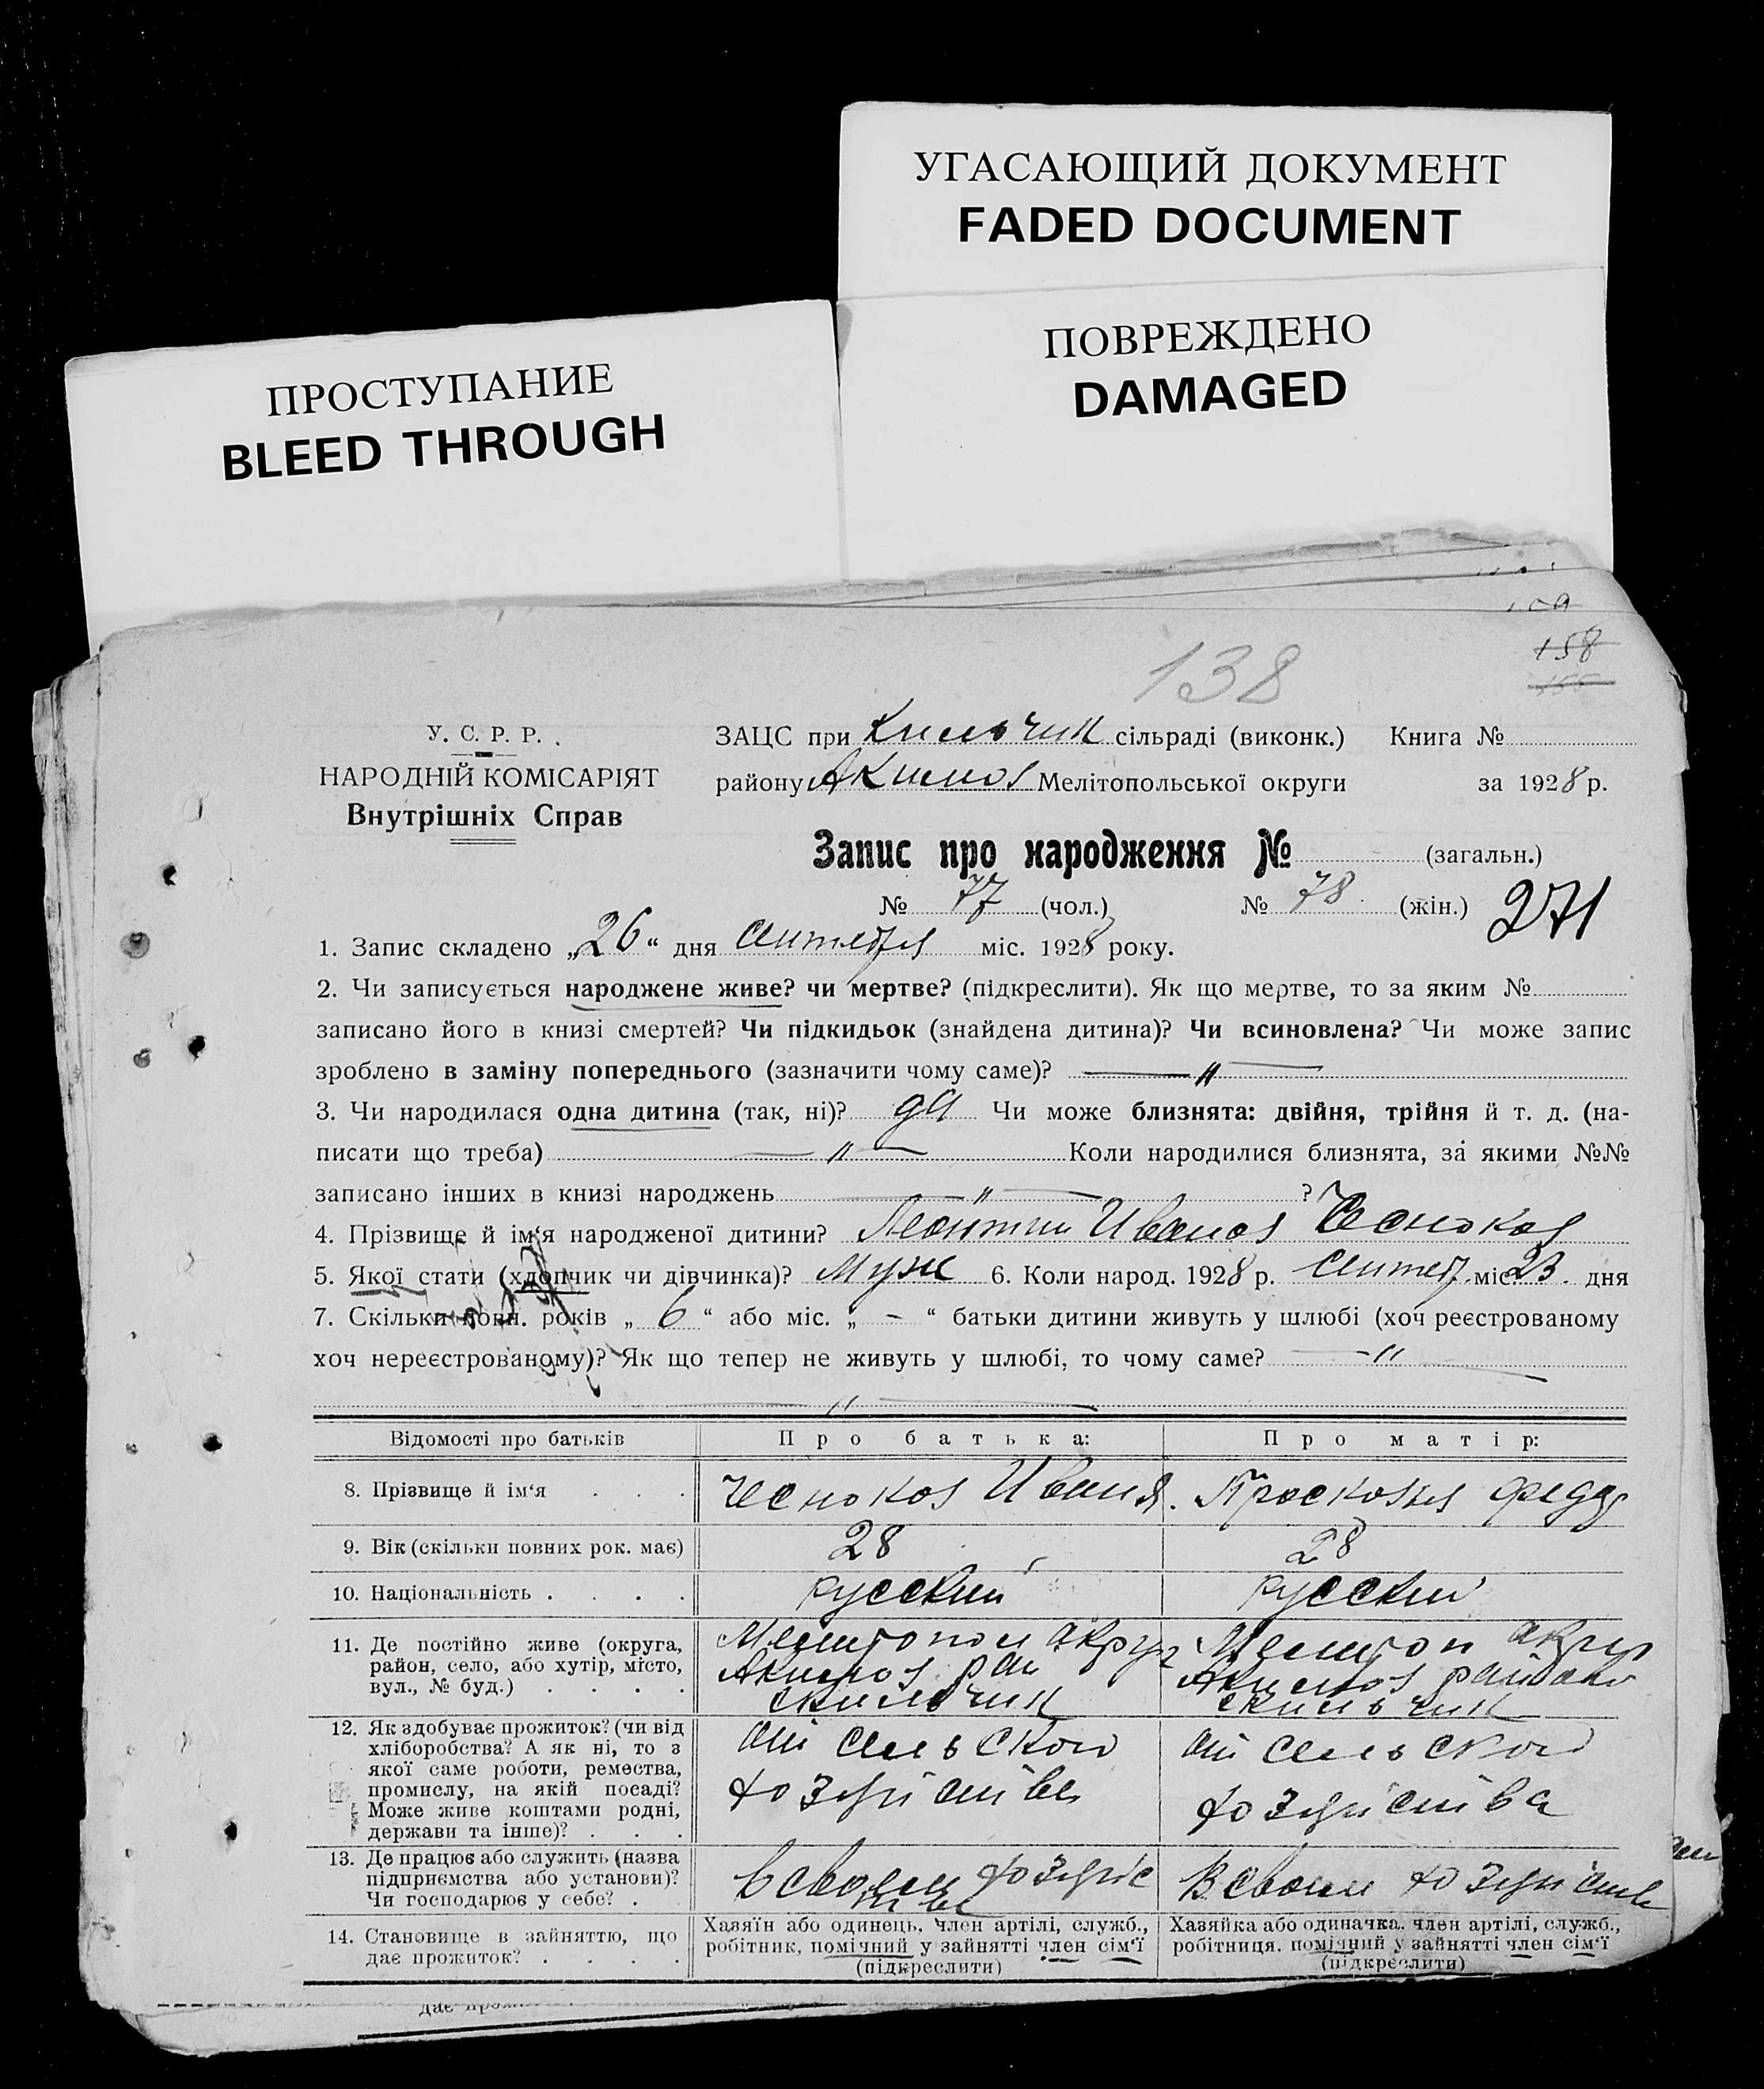 УГАСАЮЩИЙ ДОКУМЕНТ
FADED DOCUMENT
ПОВРЕЖДЕНО
DAMAGED
ПРОСТУПАНИЕ
BLEED THROUGH
158
138
У. С. Р. Р.
НАРОДНІЙ КОМІСАРІЯТ
Внутрішніх Справ
ЗАЦС при сільраді (виконк.) Книга №
району Акимов Мелітопольської округи за 1928 р.
Запис про народження № (загальн.)
№ 77 (чол.) № 78 (жін.) 271
1. Запис складено „26“ дня сентября міс. 1928 року.
2. Чи записується народжене живе? чи мертве? (підкреслити). Як що мертве, то за яким №
записано його в книзі смертей? Чи підкидьок (знайдена дитина)? Чи всиновлена? Чи може запис
зроблено в заміну попереднього (зазначити чому саме)? —〃 —
3. Чи народилася одна дитина (так, ні)? да Чи може близнята: двійня, трійня й т. д. (на-
писати що треба) — 〃 — Коли народилися близнята, за якими №№
записано інших в книзі народжень — 〃 — ?
4. Прізвище й ім‘я народженої дитини? Иванов Чесноков
5. Якої стати (хлопчик чи дівчинка)? Муж 6. Коли народ. 1928 р. Сентяб. міс. 23. дня
7. Скільки повн. років „ 6 “ або міс. „ - “ батьки дитини живуть у шлюбі (хоч реєстрованому
хоч нереєстрованому)? Як що тепер не живуть у шлюбі, то чому саме? — 〃 —
— 〃 —
Відомості про батьків Про батька: Про матір:
8. Прізвище й ім‘я . . . Чесноков Иван Я. Просковья Федор
9. Вік (скільки повних рок. має) 28 28
10. Національність . . . . русский русский
11. Де постійно живе (округа,
район, село, або хутір, місто,
вул., № буд.) . . . .
Мелитопол округ
Акимов рай
Мелитоп округ
Акимов район
12. Як здобуває прожиток? (чи від
хліборобства? А як ні, то з
якої саме роботи, ремества,
промислу, на якій посаді?
Може живе коштами родні,
держави та інше)? . . .
от сельского
хозяйства
от сельского
хозяйства
13. Де працює або служить (назва
підприємства або установи)?
Чи господарює у себе? .
в своем хозяйс
тве
В своем хозяйстве
14. Становище в зайняттю, що
дає прожиток? . . . .
Хазяїн або одинець, член артілі, служб.,
робітник, помічний у зайнятті член сім‘ї
(підкреслити)
Хазяйка або одиначка, член артілі, служб.,
робітниця, помічний у зайнятті член сім‘ї
(підкреслити)